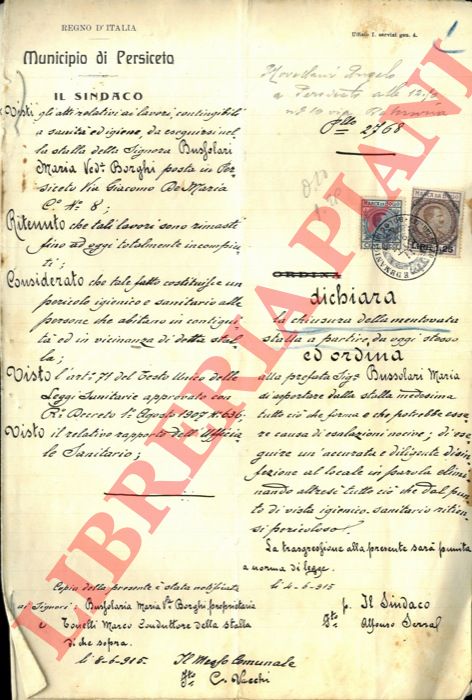 REGNO D'ITALIA
Ufficio I. servizi gen. 4.
Municipio di Persiceto
IL SINDACO
Visti gli atti relativi ai lavori, contingibili
a sanità ed igiene, da eseguirsi nel
la stalla della Signora Bussolari
Maria Ved. Borghi posta in Per
siceto Via Giacomo De Maria
C.° N° 8;
Ritenuto che tali lavori sono rimasti
fino ad oggi totalmente incompiu
ti;
Considerato che tale fatto costituisce un
pericolo igienico e sanitario alle
persone che abitano in contigui
tà ed in vicinanza di detta stal
la;
Visto l'art° 71 del Testo Unico delle
Leggi Sanitarie approvato con
R° Decreto 1° Agosto 1907 N° 636;
Visto il relativo rapporto dell'Ufficia
le Sanitario;
Copia della presente è stata notificata
ai Signori: Bussolari Maria Va Borghi, proprietaria
e Tonelli Marco Conduttore della stalla
di che sopra.
li 8-6-915. Il Messo Comunale
fto C. Vecchi
Angelo
a Persiceto alle
via
2768
MARCA DA BOLLO
MARCA DA BOLLO
Lire 1,25
ORDINA
dichiara
la chiusura della mentovata
stalla a partire da oggi stesso
ed ordina
alla prefata Sigra Bussolari Maria
di asportare dalla stalla medesima
tutto ciò che forma e che potrebbe esse
re causa di esalazioni nocive; di ese
guire un'accurata e diligente disin
fezione al locale in parola elimi
nando altresì tutto ciò che dal pun
to di vista igienico-sanitario ritien
si pericoloso.
La trasgressione alla presente sarà punita
a norma di legge.
li 4-6-915
p. Il Sindaco
fto Alfonso
LIBRERIA PIANI
LIBRERIA PIANI
LIBRERIA PIANI